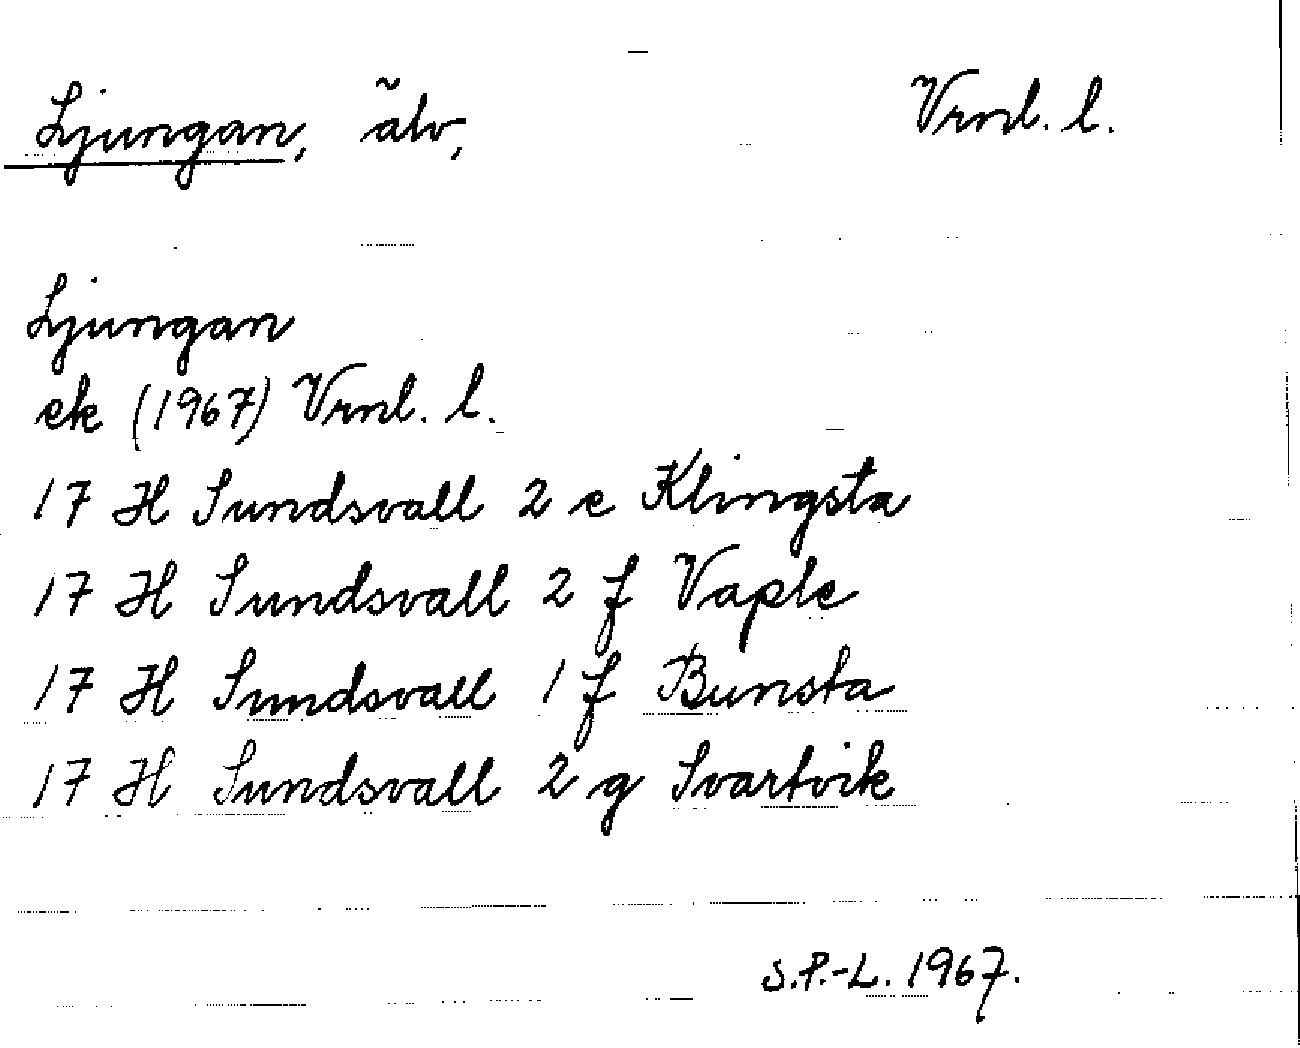 Ljungan, älv, Vrnl. l.
Ljungan
ek (1967) Vrnl. l.
17 H Sundsvall 2 e Klingsta
17 H Sundsvall 2 f Vaple
17 H Sundsvall 1 f Bunsta
17 H Sundsvall 2 g Svartvik
S.P.-L. 1967.